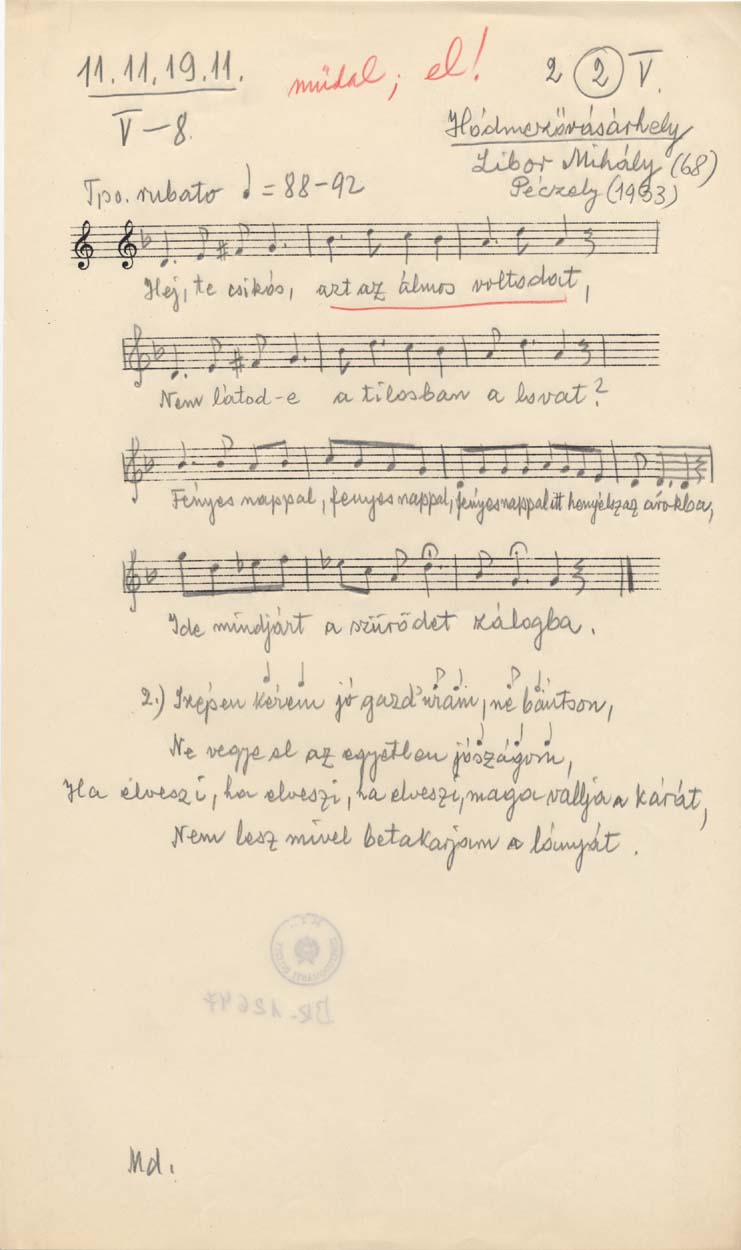 11.11.19.11.
műdal; el!
2 2 V.
V-8.
Hódmezővásárhely
Libor Mihály (68)
Péczely (1953)
Tpo. rubato ♩ = 88-92
Hej, te csikós, azt az álmos voltodat,
Nem látod-e a tilosban a lovat?
Fényes nappal, fenyes nappal, fényes nappal itt henyélsz az árokba,
Ide mindjárt a szűrődet zálogba.
2.) Szépen kérem jó gazd'uram, ne bántson,
Ne vegye el az egyetlen jószágom,
Ha elveszi, ha elveszi, ha elveszi, maga vallja a kárát,
Nem lesz mivel betakarjam a lányát.
BR-12647
Md.